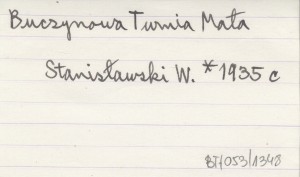 Buczynowa Turnia Mała
Stanisławski W. * 1935 c
BH/053/1348